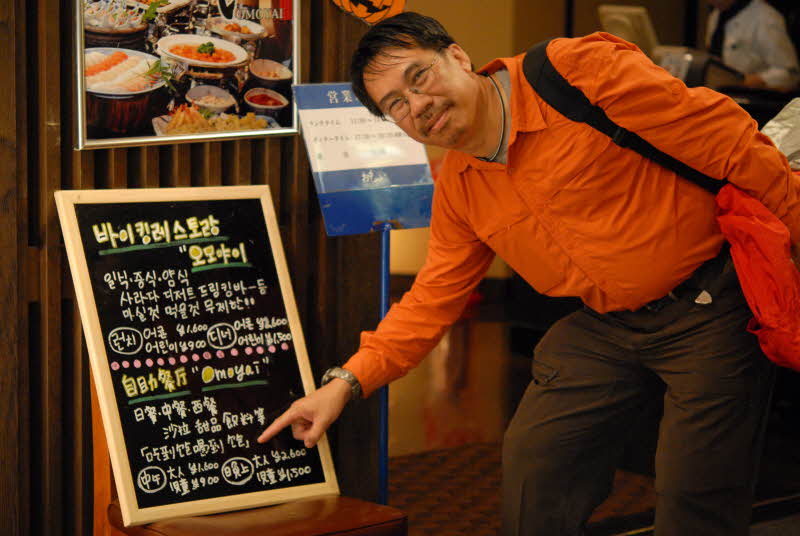 OMOYAI
営業
ランチタイム
ディナータイム
바이킹레스토랑
"오모야이"
일식·중식·양식
사라다 디저트 드링킹바-등
마실것 먹을것 무제한!!
런치 어른 ¥1,600 디너 어른 ¥2,600
어린이 ¥900 어린이 ¥1,500
自助餐厅 "Omoyai"
日餐·中餐·西餐
沙拉 甜品 飲料等
「吃到飽喝到飽」
中午 大人 ¥1,600 晚上 大人 ¥2,600
児童 ¥900 児童 ¥1,500